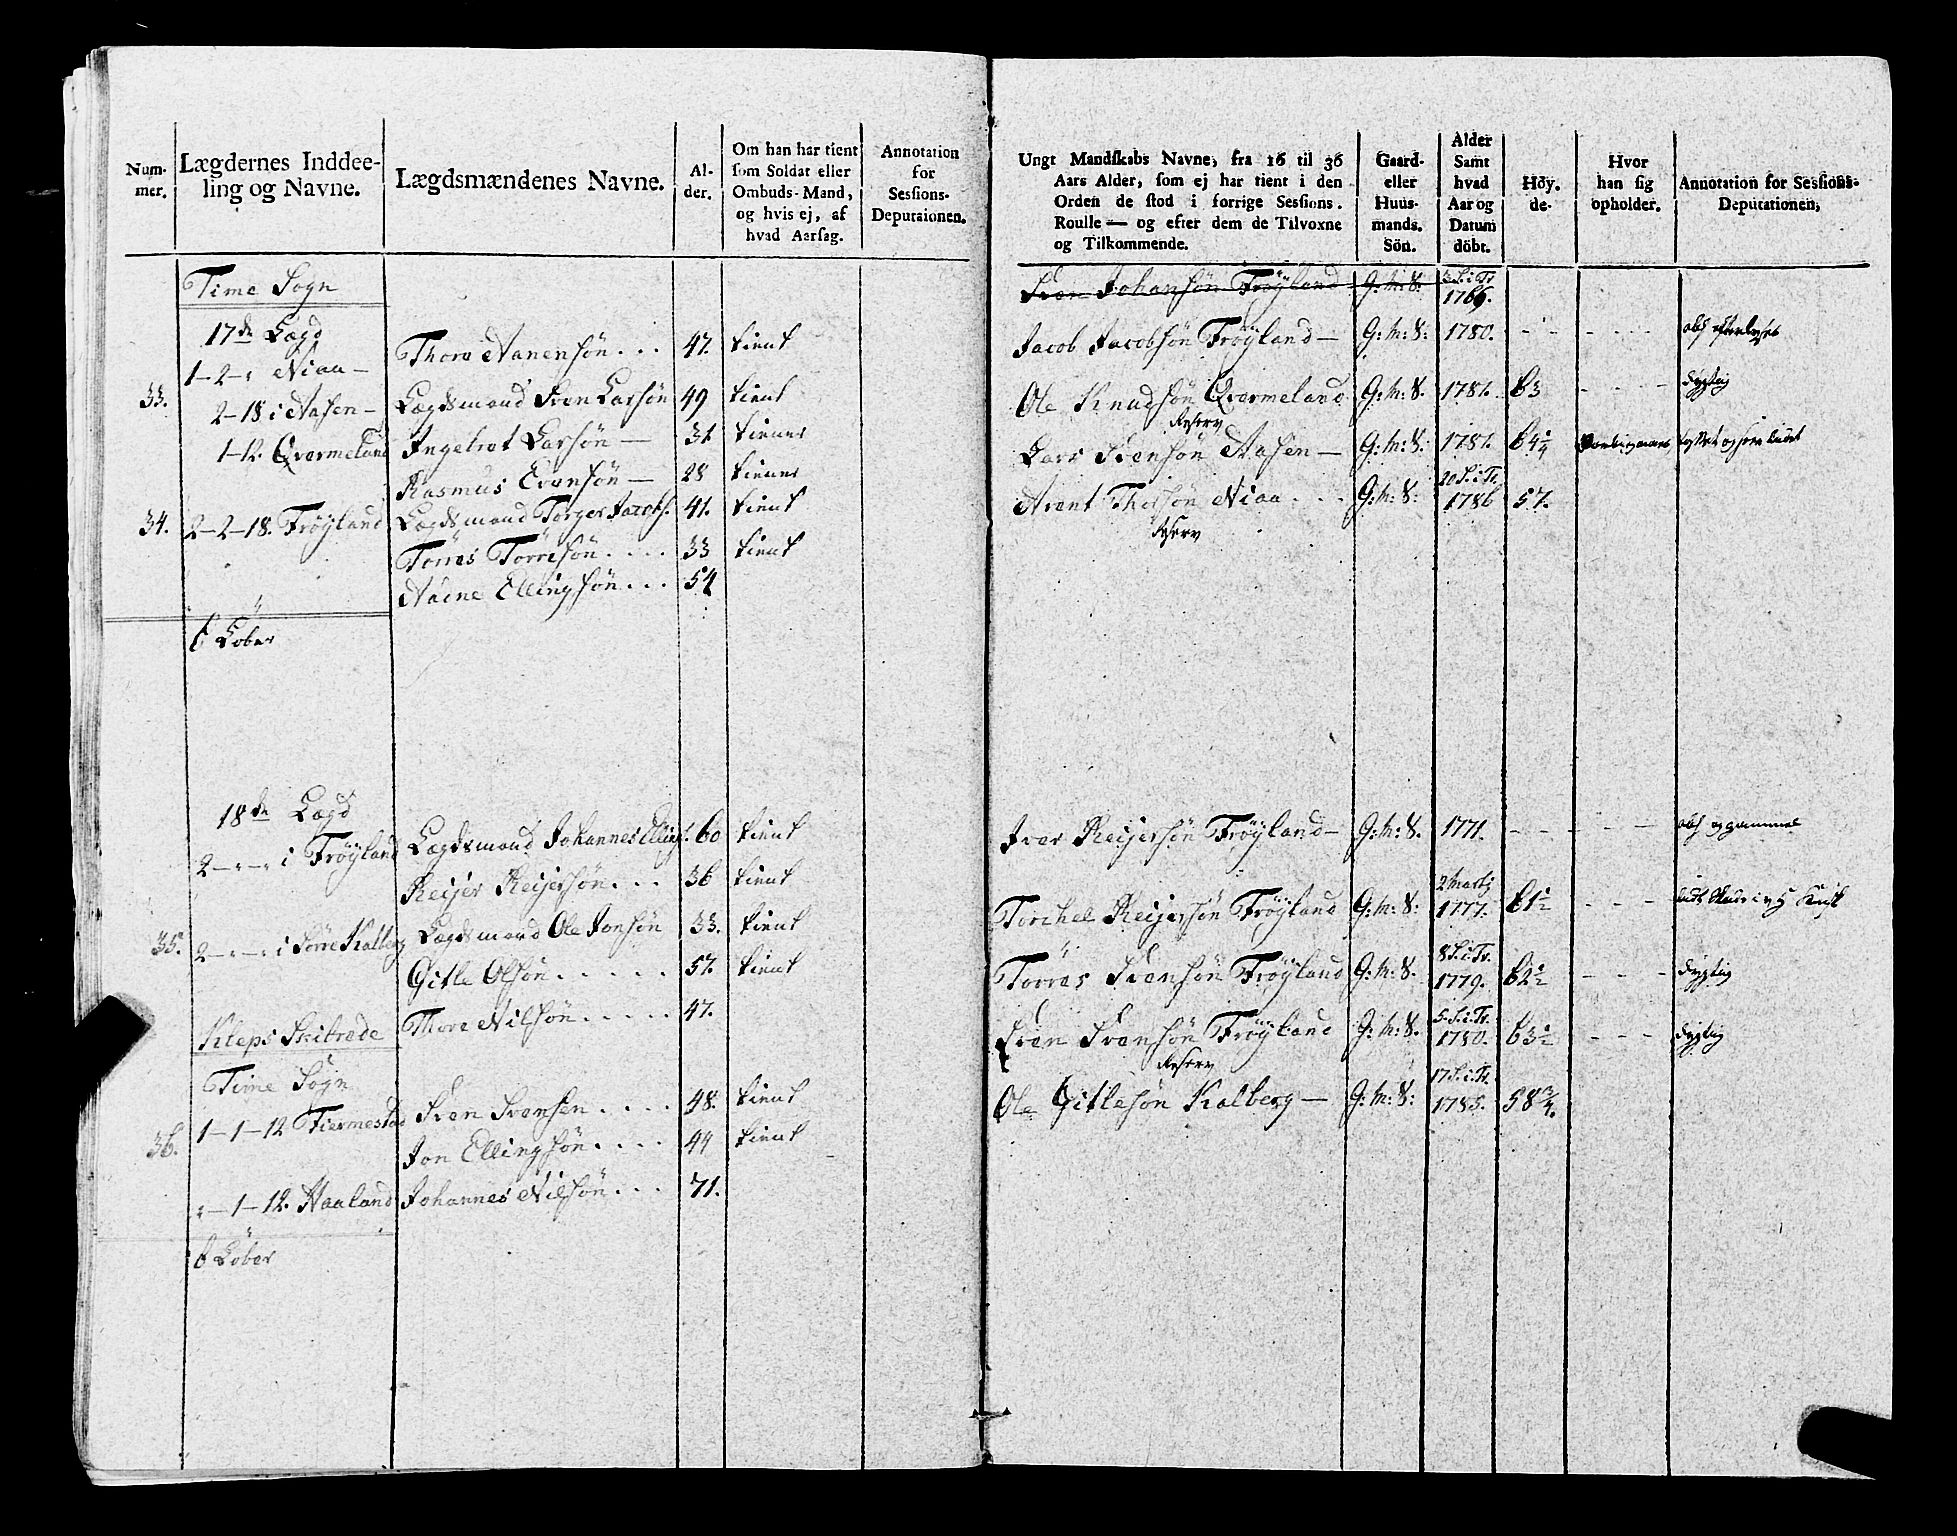 Num-
mer.
Lægdernes Inddee-
ling og Navne.
Lægdsmændenes Navne.
Al-
der.
Om han har tient
som Soldat eller
Ombuds-Mand,
og hvis ej, af
hvad Aarsag.
Annotation
for
Sessions-
Deputaionen.
Time Sogn
17de Lægd
1-2-" Niaa -
Thore Aanensön . . . 47. tient
33. 2-18 i Aasen -
Lægdsmand Sven Larsön 49 tient
1-12. Qvermeland
Ingebret Larsön — 31 tiener
Rasmus Evensön — 28 tiener
34. 2-2-18. Fröyland
Lægdsmand Torger Jacobs. 41. tient
Tönes Torresön . . . . 33 tient
Aadne Ellingsön . . . 54
6 Löber
18de Lægd
2-"-" i Fröyland
Lægdsmand Johannes Ellings. 60 tient
Reijer Reijersön . . . 36 tient
35. 2-"-" i Sörre Kalberg
Lægdsmand Ole Jonsön 33. tient
Gitle Olsön . . . . . 57. tient
Thore Nilsön . . . . . 47.
Kleps Skibrede
Time Sogn
36. 1-1-12 Tiermestad
Sven Svensen . . . . 48. tient
Jon Ellingsön . . . . 44 tient
"-1-12. Haaland
Johannes Nilsön . . . 71.
6 Löber
Ungt Mandskabs Navne, fra 16 til 36
Aars Alder, som ej har tient i den
Orden de stod i forrige Sessions-
Roulle — og efter dem de Tilvoxne
og Tilkommende.
Gaard-
eller
Huus-
mands-
Sön.
Alder
Samt
hvad
Aar og
Datum
döbt.
Höy-
de-
Hvor
han sig
opholder.
Annotation for Sessions-
Deputationen,
Sven Johansön Fröyland G:m:S: 3 S. i Tr. 1769.
Jacob Jacobsön Fröyland — G:m:S: 1780.
Ole Knudsön Qvermeland G:m:S. 1781. 63 dygtig
Reserv
Lars Svensön Aasen — G:m:S: 1781. 64 1/4
Arent Thorsön Niaa . . . G:m:S: 20 S. i Tr. 1786 57.
Reserv
Iver Reijersön Fröyland — G:m:S. 1771. obs og gammel
Torchel Reijersön Fröyland G:m:S: 2 Martj 1777. 61 1/2
Torres Svensön Fröyland G:m:S. 8 S. i Tr. 1779. 62 1/2 dygtig
Sven Svensön Fröyland G:m:S. 5. S. i Tr. 1780. 63 1/2 dygtig
Reserv
Ole Gitlesön Kalberg — G:m:S: 17 S. i Tr. 1785. 58 3/4.